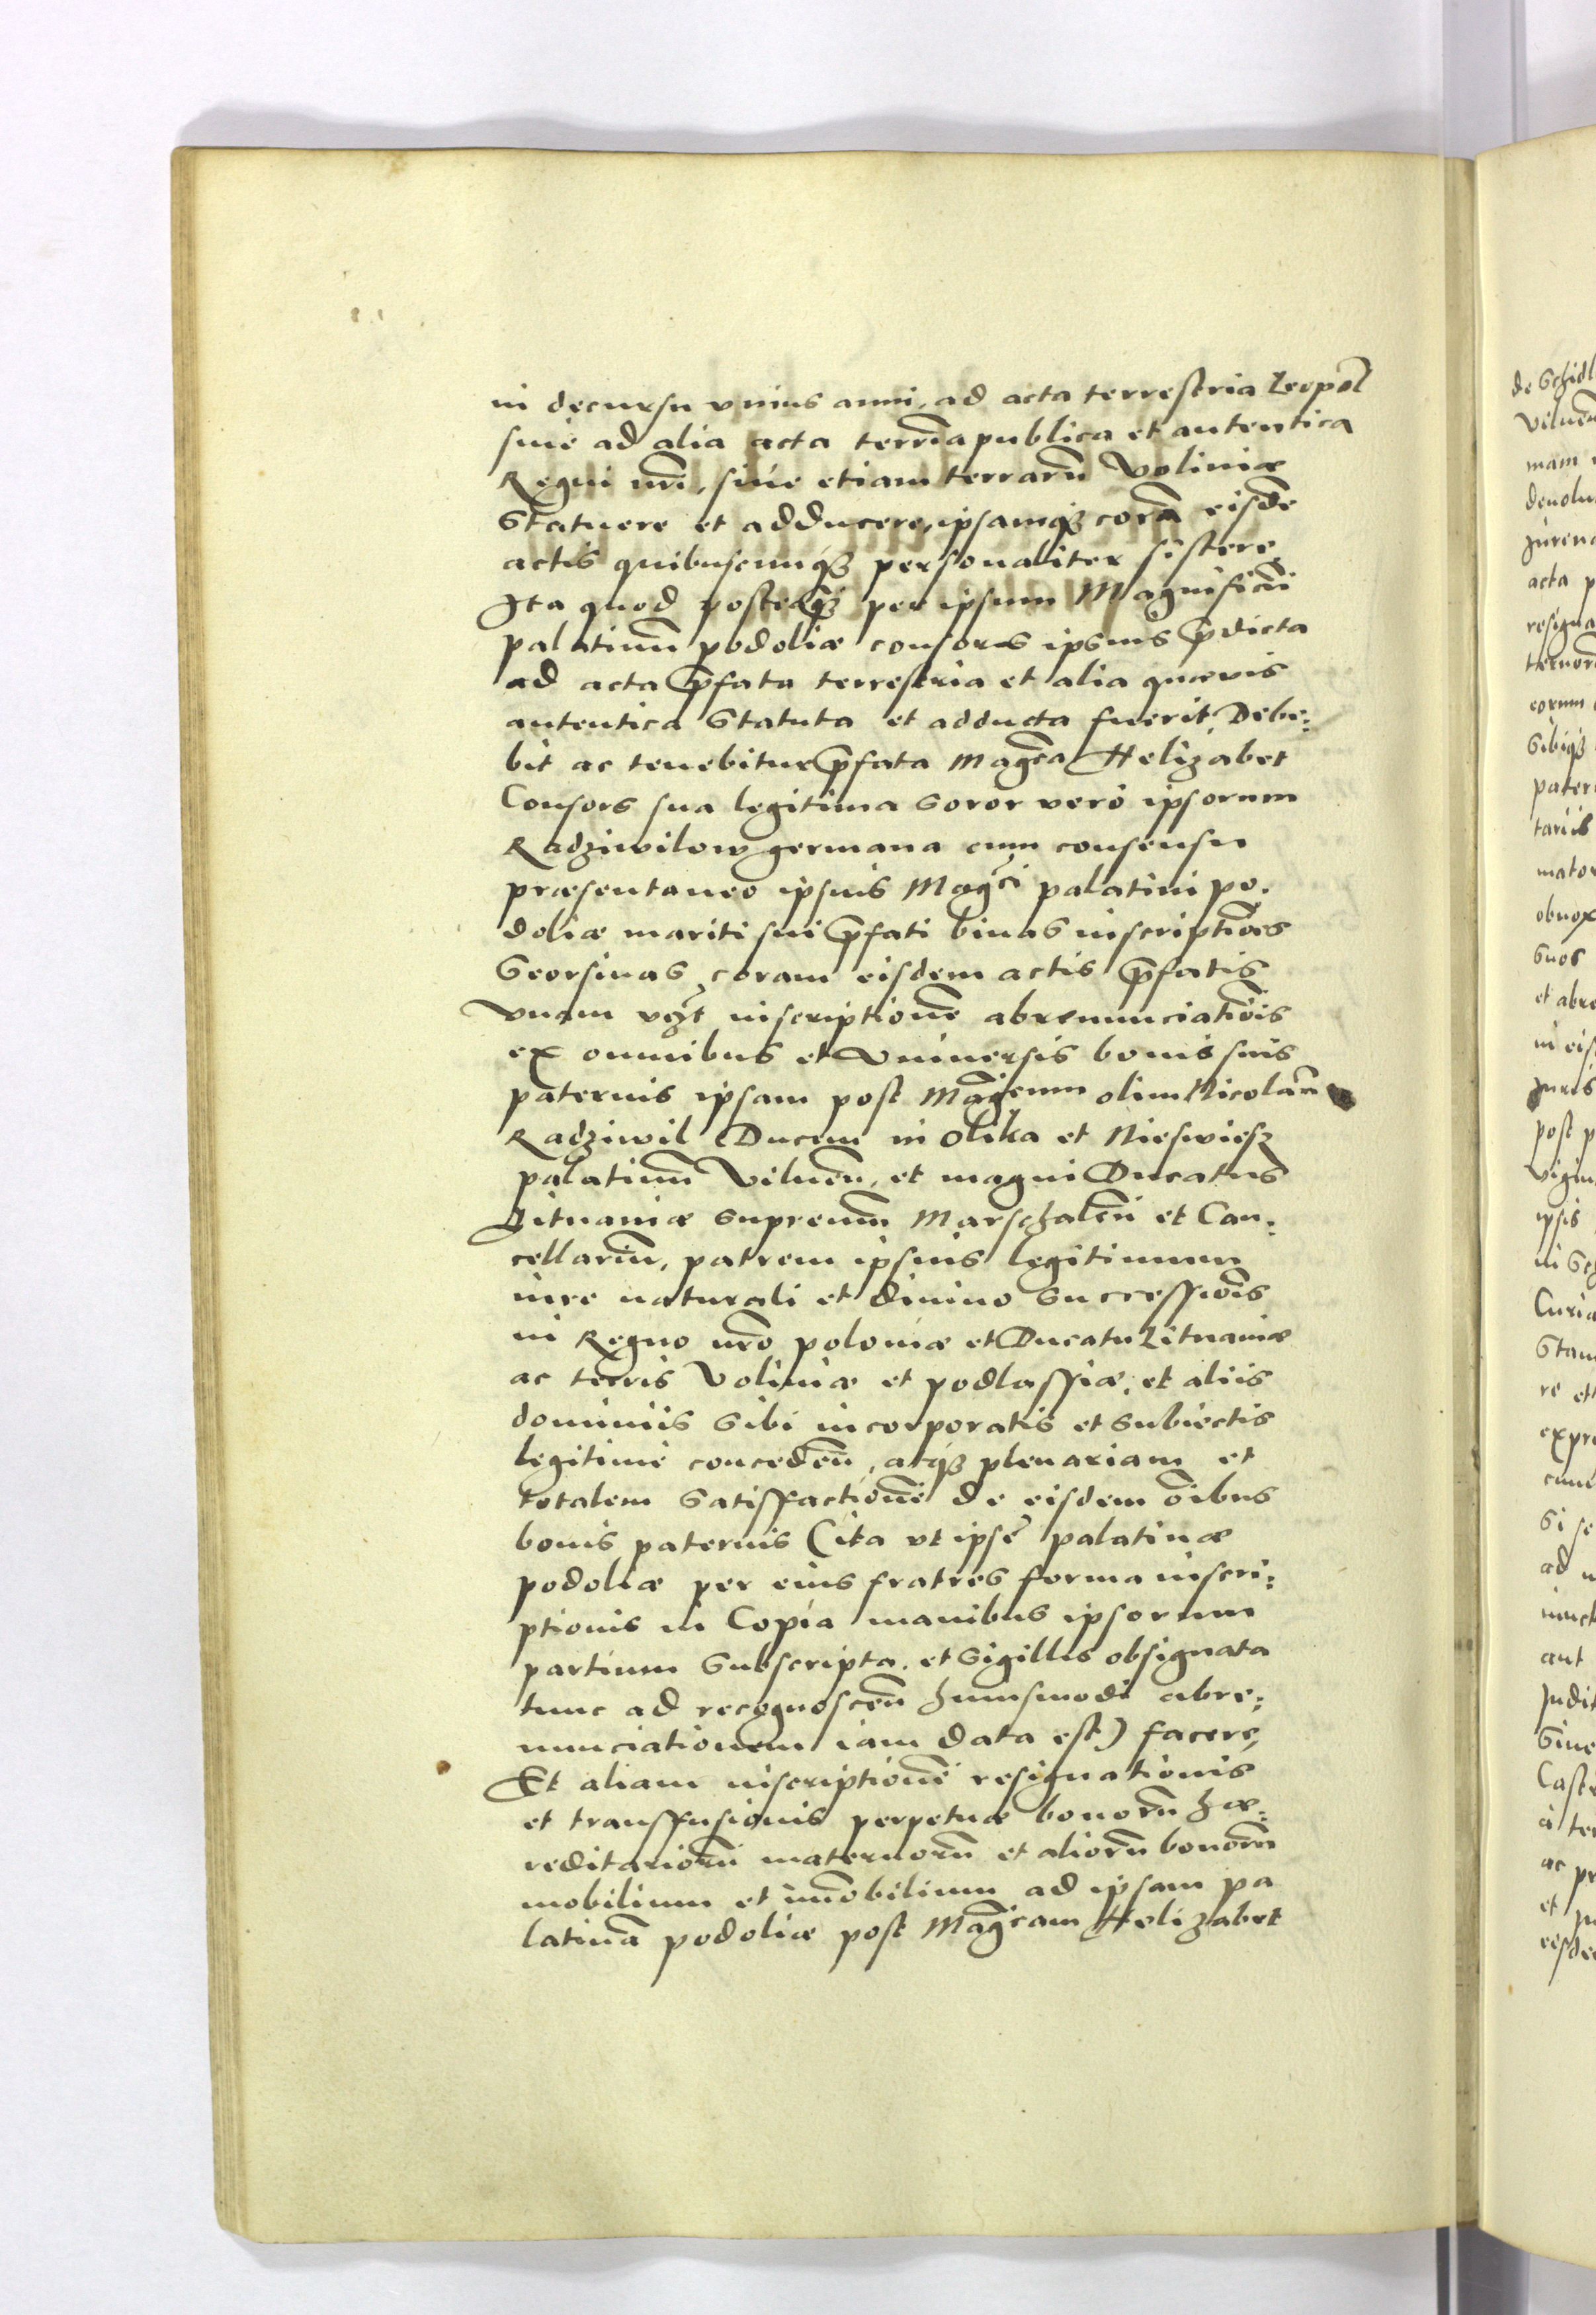 in decursu vnius anni, ad acta terrestria Leopol̃
siue ad alia acta terrĩa publica et autentica
Regni nrĩ, siue etiam terrarũ Voliniæ
Statuere et adducere, ipsamq; corã eisdẽ
actis quibuscunq; personaliter sistere,
Ita quod posteaq̃; per ipsum Magnificũ
palatinũ podoliæ consors ipsius p̃dicta
ad acta p̃fata terrestria et alia quæuis
autentica Statuta et adducta fuerit, Debe:
bit ac tenebitur p̃fata Mag̃ca Helizabet
Consors sua legitima soror vero ipsorum
Radziwilow germana cum consensu
præsentaneo ipsius Mag̃ci palatini po.
doliæ mariti sui p̃fati binas inscriptiões
Seorsiuas coram eisdem actis p̃fatis
Vnam vz̃t inscriptionẽ abrenunciatiõis
ex omnibus et Vniuersis bonis suis
paternis ipsam post Mag̃cum olim Nicolaũ
Radziwil Ducem in Olika et Nieswiesz
palatinũ Vilneñ, et magni Ducatus
Lituaniæ supremũ Marschalcũ et Can:
cellariũ, patrem ipsius legitimum
iure naturali et diuino successiõis
in Regno nrõ poloniæ et Ducatu Lituaniæ
ac terris Voliniæ et podlassiæ, et aliis
dominiis sibi incorporatis et subiectis
legitime concedeñ, atq; plenariam et
totalem satisfactionẽ de eisdem oĩbus
bonis paternis (ita vt ipse palatinæ
podoliæ per eius fratres forma inscri:
ptionis in Copia manibus ipsorum
partium subscripta, et sigillis obsignata
tunc ad recognosceñ huiusmodi abre:
nunciationem iam data est) facere,
Et aliam inscriptionẽ resignationis
et transfusionis perpetuæ bonorũ hæ:
reditariorũ maternorũ et aliorũ bonorũ
mobilium et im̃obilium ad ipsam pa
latinã podoliæ post Mag̃cam Helizabet